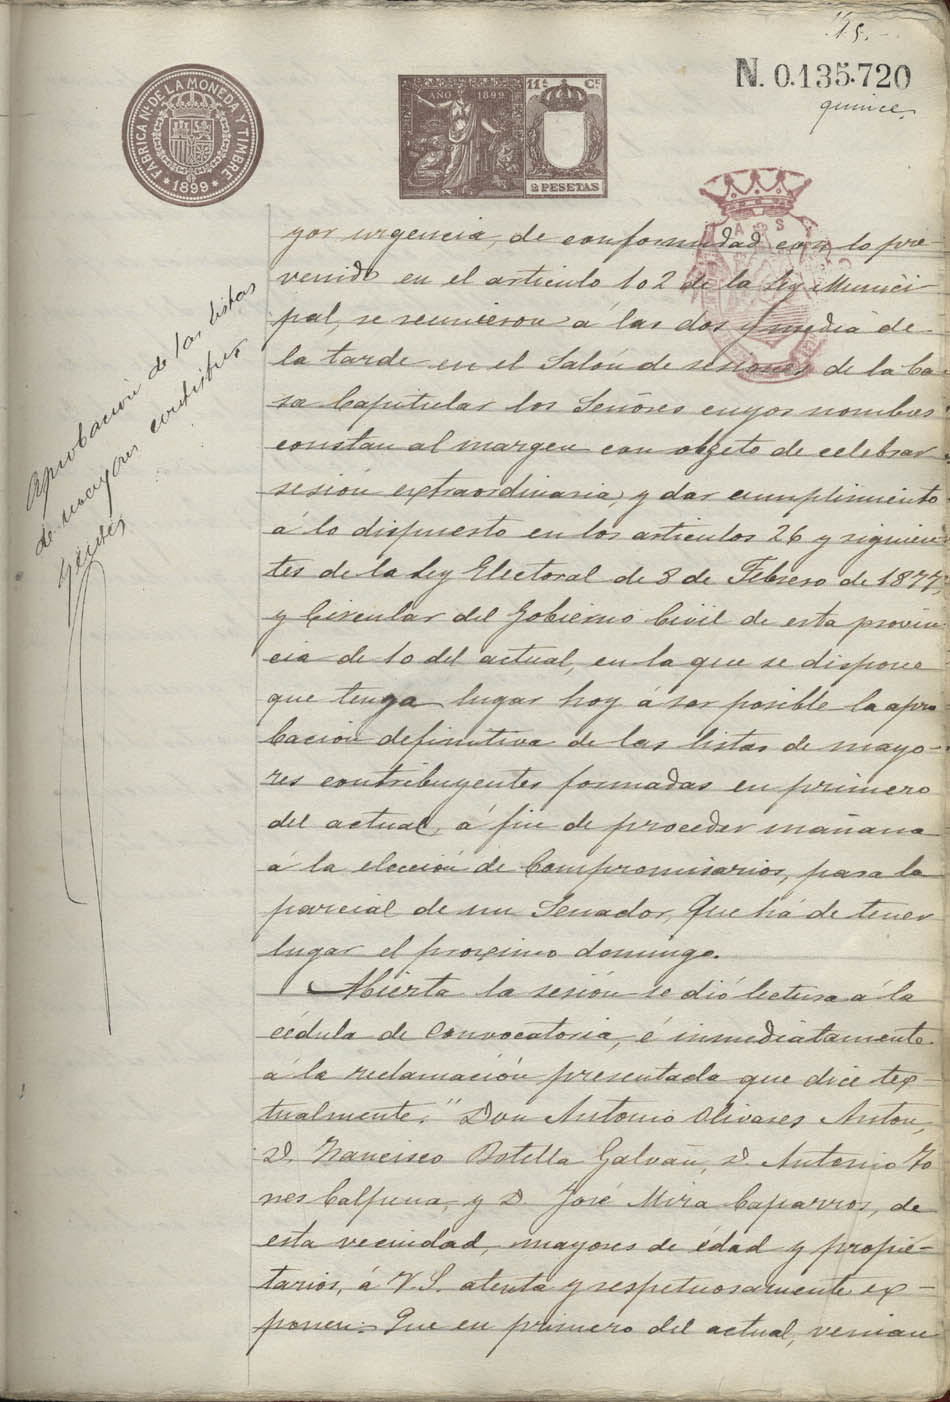 15.
N. 0.135.720
quince.
FÁBRICA Nal. DE LA MONEDA Y TIMBRE
1899
AÑO 1899
11ª Cª
2 PESETAS
Aprobacion de las listas
de mayores contribu
yentes
yor urgencia, de conformidad con lo pre-
venido en el articulo 102 de la Ley Munici
pal, se reunieron á las dos y media de
la tarde en el Salón de sesiones de la Ca-
sa Capitular los Señores cuyos nombres
constan al margen con objeto de celebrar
sesión extraordinaria, y dar cumplimiento
á lo dispuesto en los articulos 26 y siguien-
tes de la Ley Electoral de 8 de Febrero de 1877,
y Circular del Gobierno Civil de esta provin-
cia de 10 del actual, en la que se dispone
que tenga lugar hoy á ser posible la apro-
bación definitiva de las listas de mayo-
res contribuyentes formadas en primero
del actual, á fin de proceder mañana
á la elección de Compromisarios, para la
parcial de un Senador, que há de tener
lugar el proximo domingo.
Abierta la sesión se dió lectura á la
cédula de convocatoria, é inmediatamente
á la reclamación presentada que dice tex-
tualmente. "Don Antonio Olivares Anton,
D. Francisco Botella Galvañ, D. Antonio
Calpena, y D. José Mira Caparros, de
esta vecindad, mayores de édad y propie-
tarios, á V.S. atenta y respetuosamente ex-
ponen: Que en primero del actual, venian